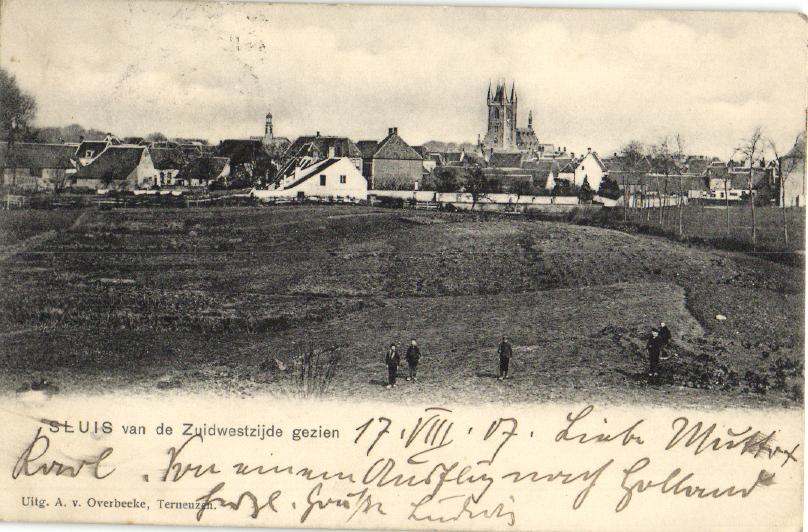 SLUIS van de Zuidwestzijde gezien 17.VIII.07. Liebe Mutter
Von einem Ausflug nach Holland
Uitg. A. v. Overbeeke, Terneuzen.
Herzl. Grüße Ludwig